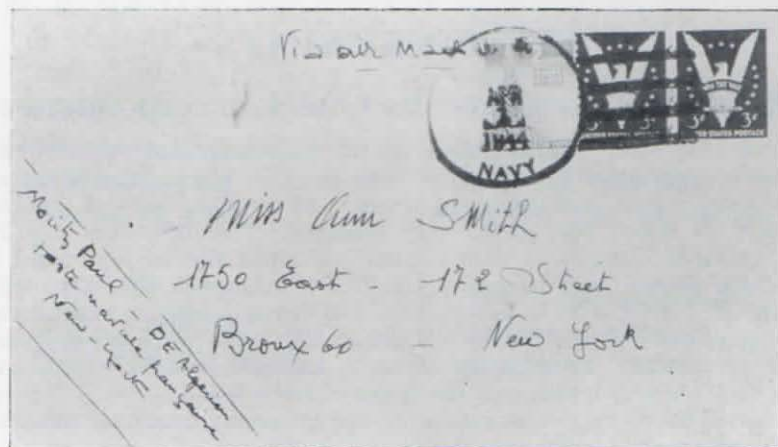 Via air Mail
APR
1944
NAVY
3¢ 3¢
UNITED STATES POSTAGE
Miss Ann Smith
1750 East - 172 Street
Bronx 60 - New York
Moritz Paul - DE Algérien
Poste navale française
New-York